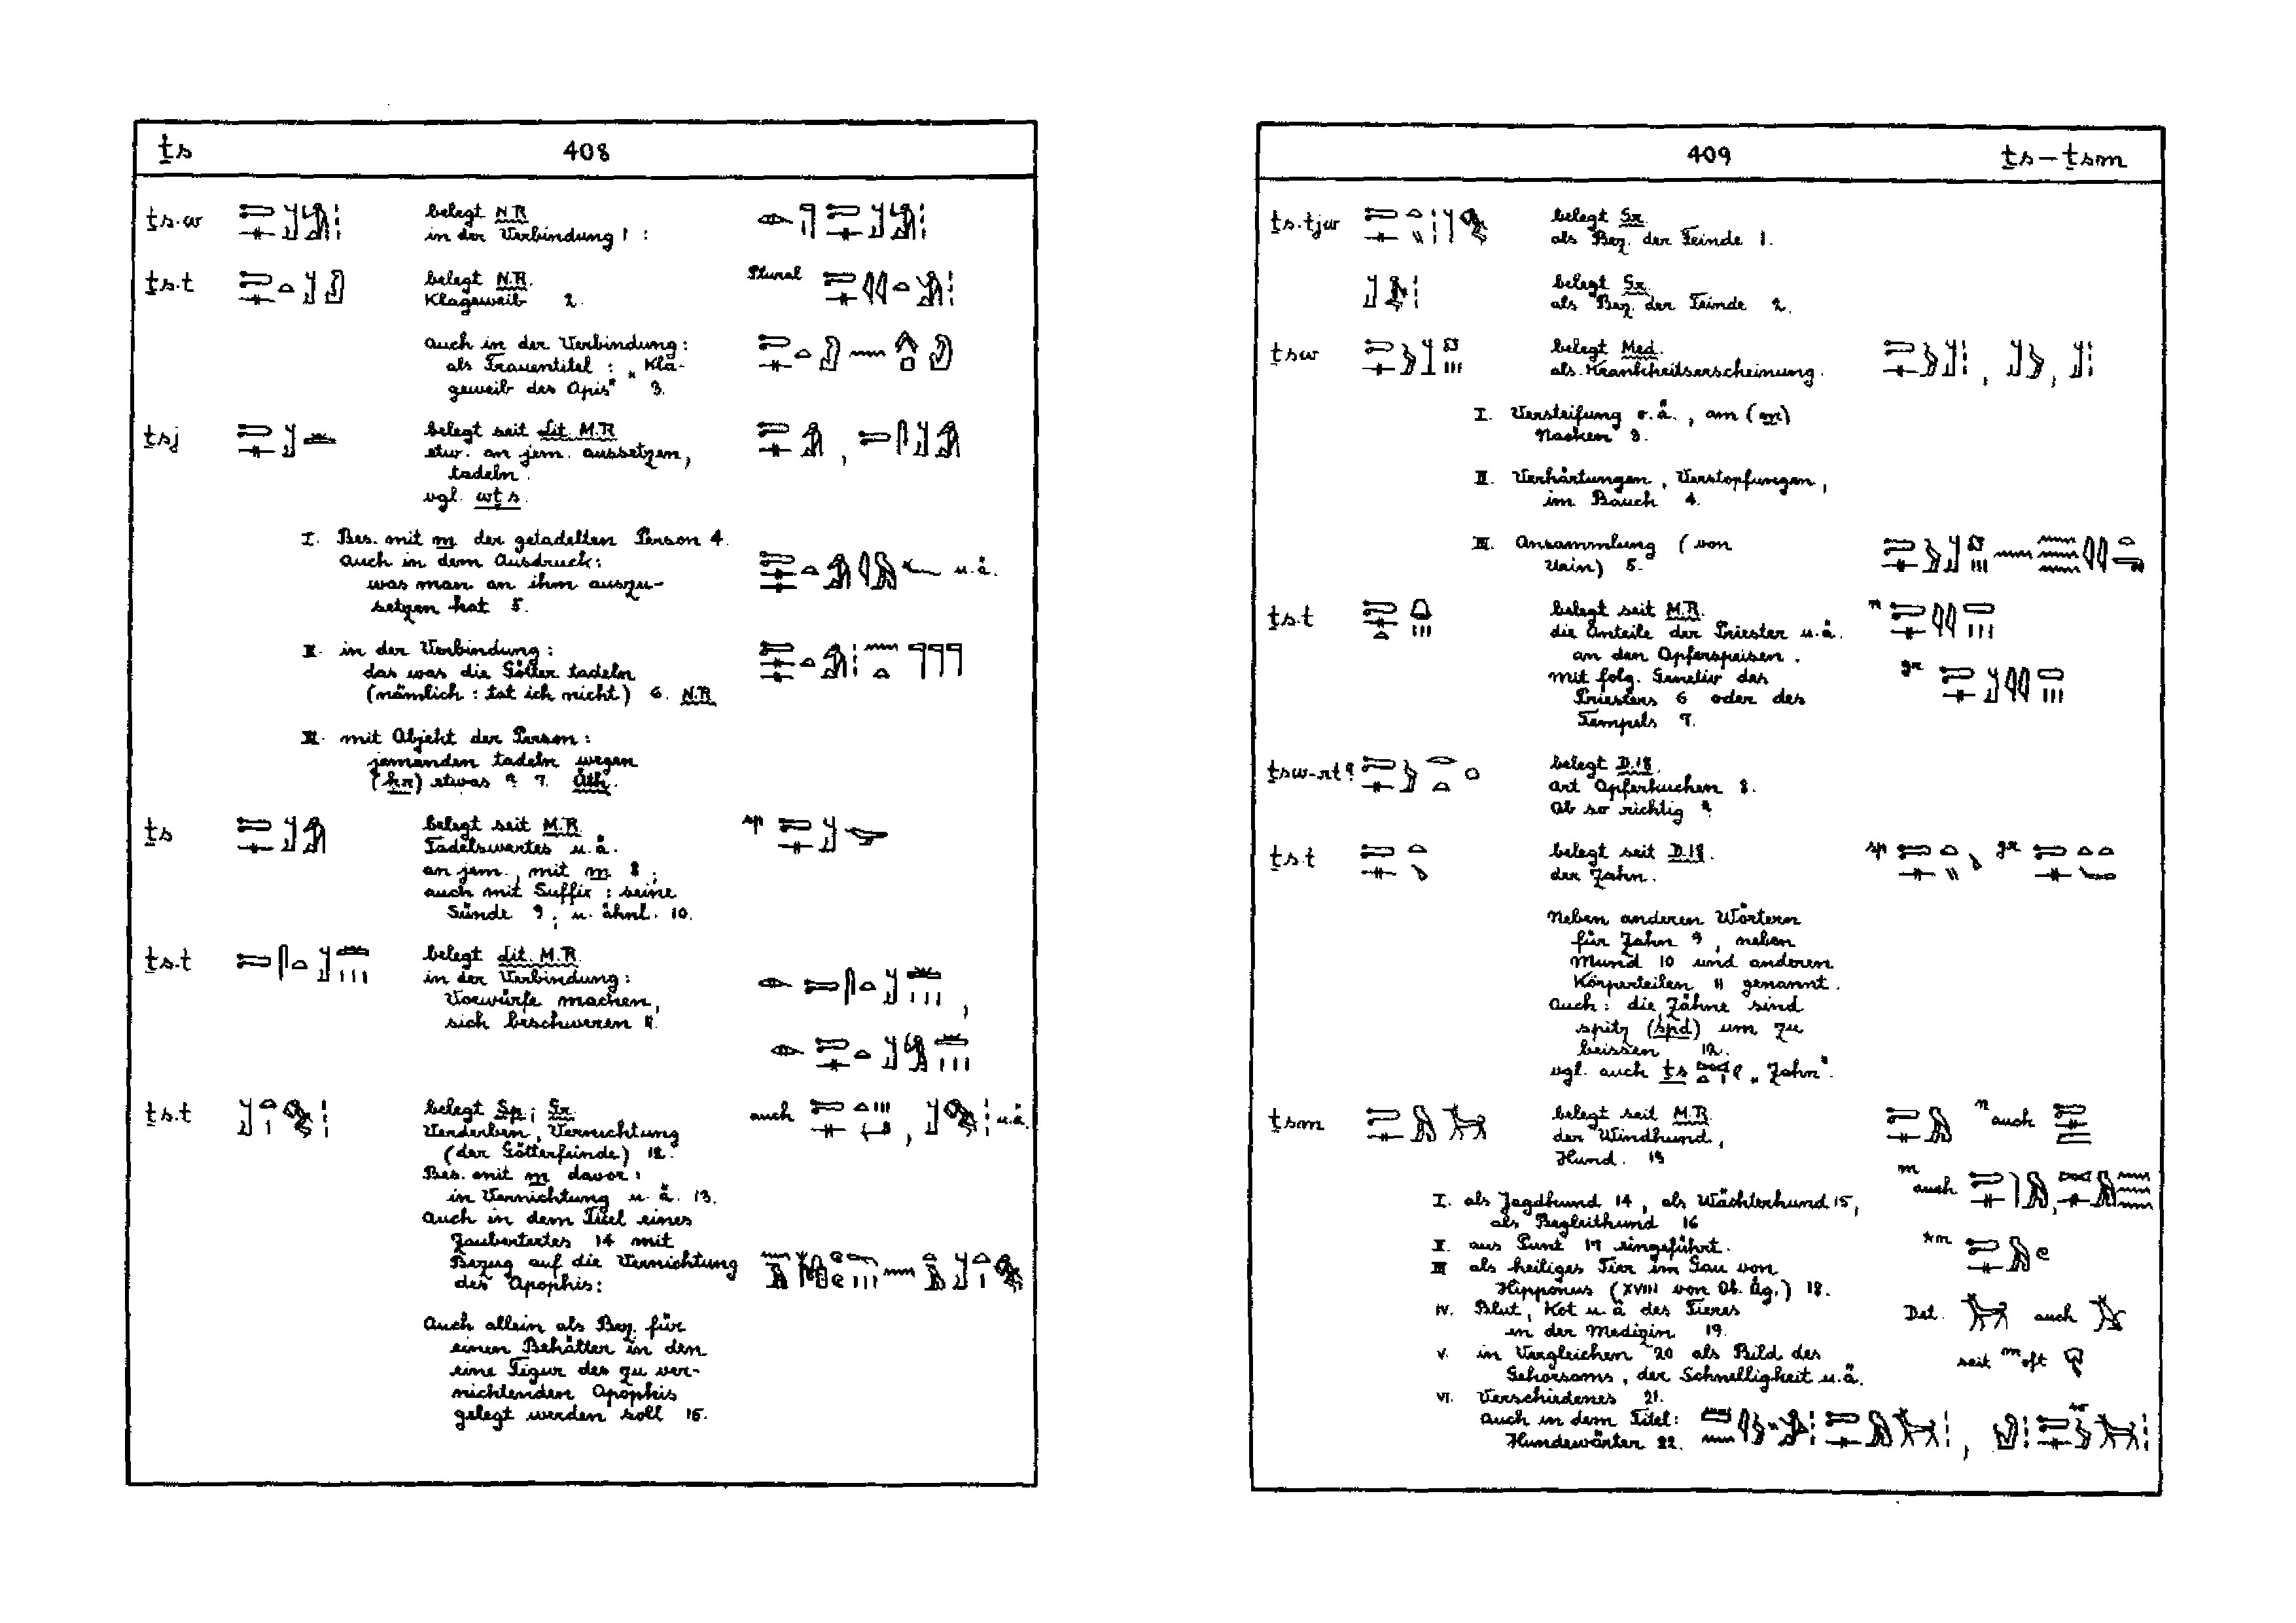 ṯs 408
ṯs.w belegt N.R.
in der Verbindung 1 :
ṯs.t belegt N.R. Plural
Klageweib 2.
auch in der Verbindung:
als Frauentitel : „Kla-
geweib des Apis" 3.
ṯsj belegt seit Lit. M.R.
etw. an jem. aussetzen,
tadeln.
vgl. wṯs.
I. Bes. mit m der getadelten Person 4.
auch in dem Ausdruck:
was man an ihm auszu- u.ä.
setzen hat 5.
II. in der Verbindung:
das was die Götter tadeln
(nämlich: tat ich nicht) 6. N.R.
III. mit Objekt der Person:
jemanden tadeln wegen
(ḥr) etwas ? 7. Äth.
ṯs belegt seit M.R. Sp
Tadelswertes u.ä.
an jem., mit m 8 ;
auch mit Suffix : seine
Sünde 9 ; u. ähnl. 10.
ṯs.t belegt Lit. M.R.
in der Verbindung:
Vorwürfe machen,
sich beschweren 11.
ṯs.t belegt Sp.; Gr. auch u.ä.
Verderben, Vernichtung
(der Götterfeinde) 12.
Bes. mit m davor:
in Vernichtung u.ä. 13.
Auch in dem Titel eines
Zaubertextes 14 mit
Bezug auf die Vernichtung
des Apophis:
Auch allein als Bez. für
einen Behälter in den
eine Figur des zu ver-
nichtenden Apophis
gelegt werden soll 15.
409 ṯs – ṯsm
ṯs.tjw belegt Gr.
als Bez. der Feinde 1.
belegt Gr.
als Bez. der Feinde 2.
ṯsw belegt Med.
als Krankheitserscheinung.
I. Versteifung o.ä., am (m)
Nacken 3.
II. Verhärtungen, Verstopfungen,
im Bauch 4.
III. Ansammlung (von
Urin) 5.
ṯs.t belegt seit M.R.
die Anteile der Priester u.ä.
an den Opferspeisen.
mit folg. Genetiv des gr
Priesters 6 oder des
Tempels 7.
ṯsw-rt? belegt D.18
Art Opferkuchen 8.
Ob so richtig ?
ṯs.t belegt seit D.18. Sp gr
der Zahn.
Neben anderen Wörtern
für Zahn 9, neben
Mund 10 und anderen
Körperteilen 11 genannt.
Auch: die Zähne sind
spitz (spd) um zu
beissen 12.
vgl. auch ṯs „Zahn".
ṯsm belegt seit M.R. auch
der Windhund,
Hund. 13
auch
I. als Jagdhund 14, als Wächterhund 15,
als Begleithund 16
II. aus Punt 17 eingeführt.
III. als heiliges Tier im Gau von
Hipponus (XVIII von Ob. Äg.) 18.
IV. Blut, Kot u.ä. des Tieres Det. auch
in der Medizin 19.
V. in Vergleichen 20 als Bild des seit oft
Gehorsams, der Schnelligkeit u.ä.
VI. Verschiedenes 21.
Auch in dem Titel:
Hundewärter 22.